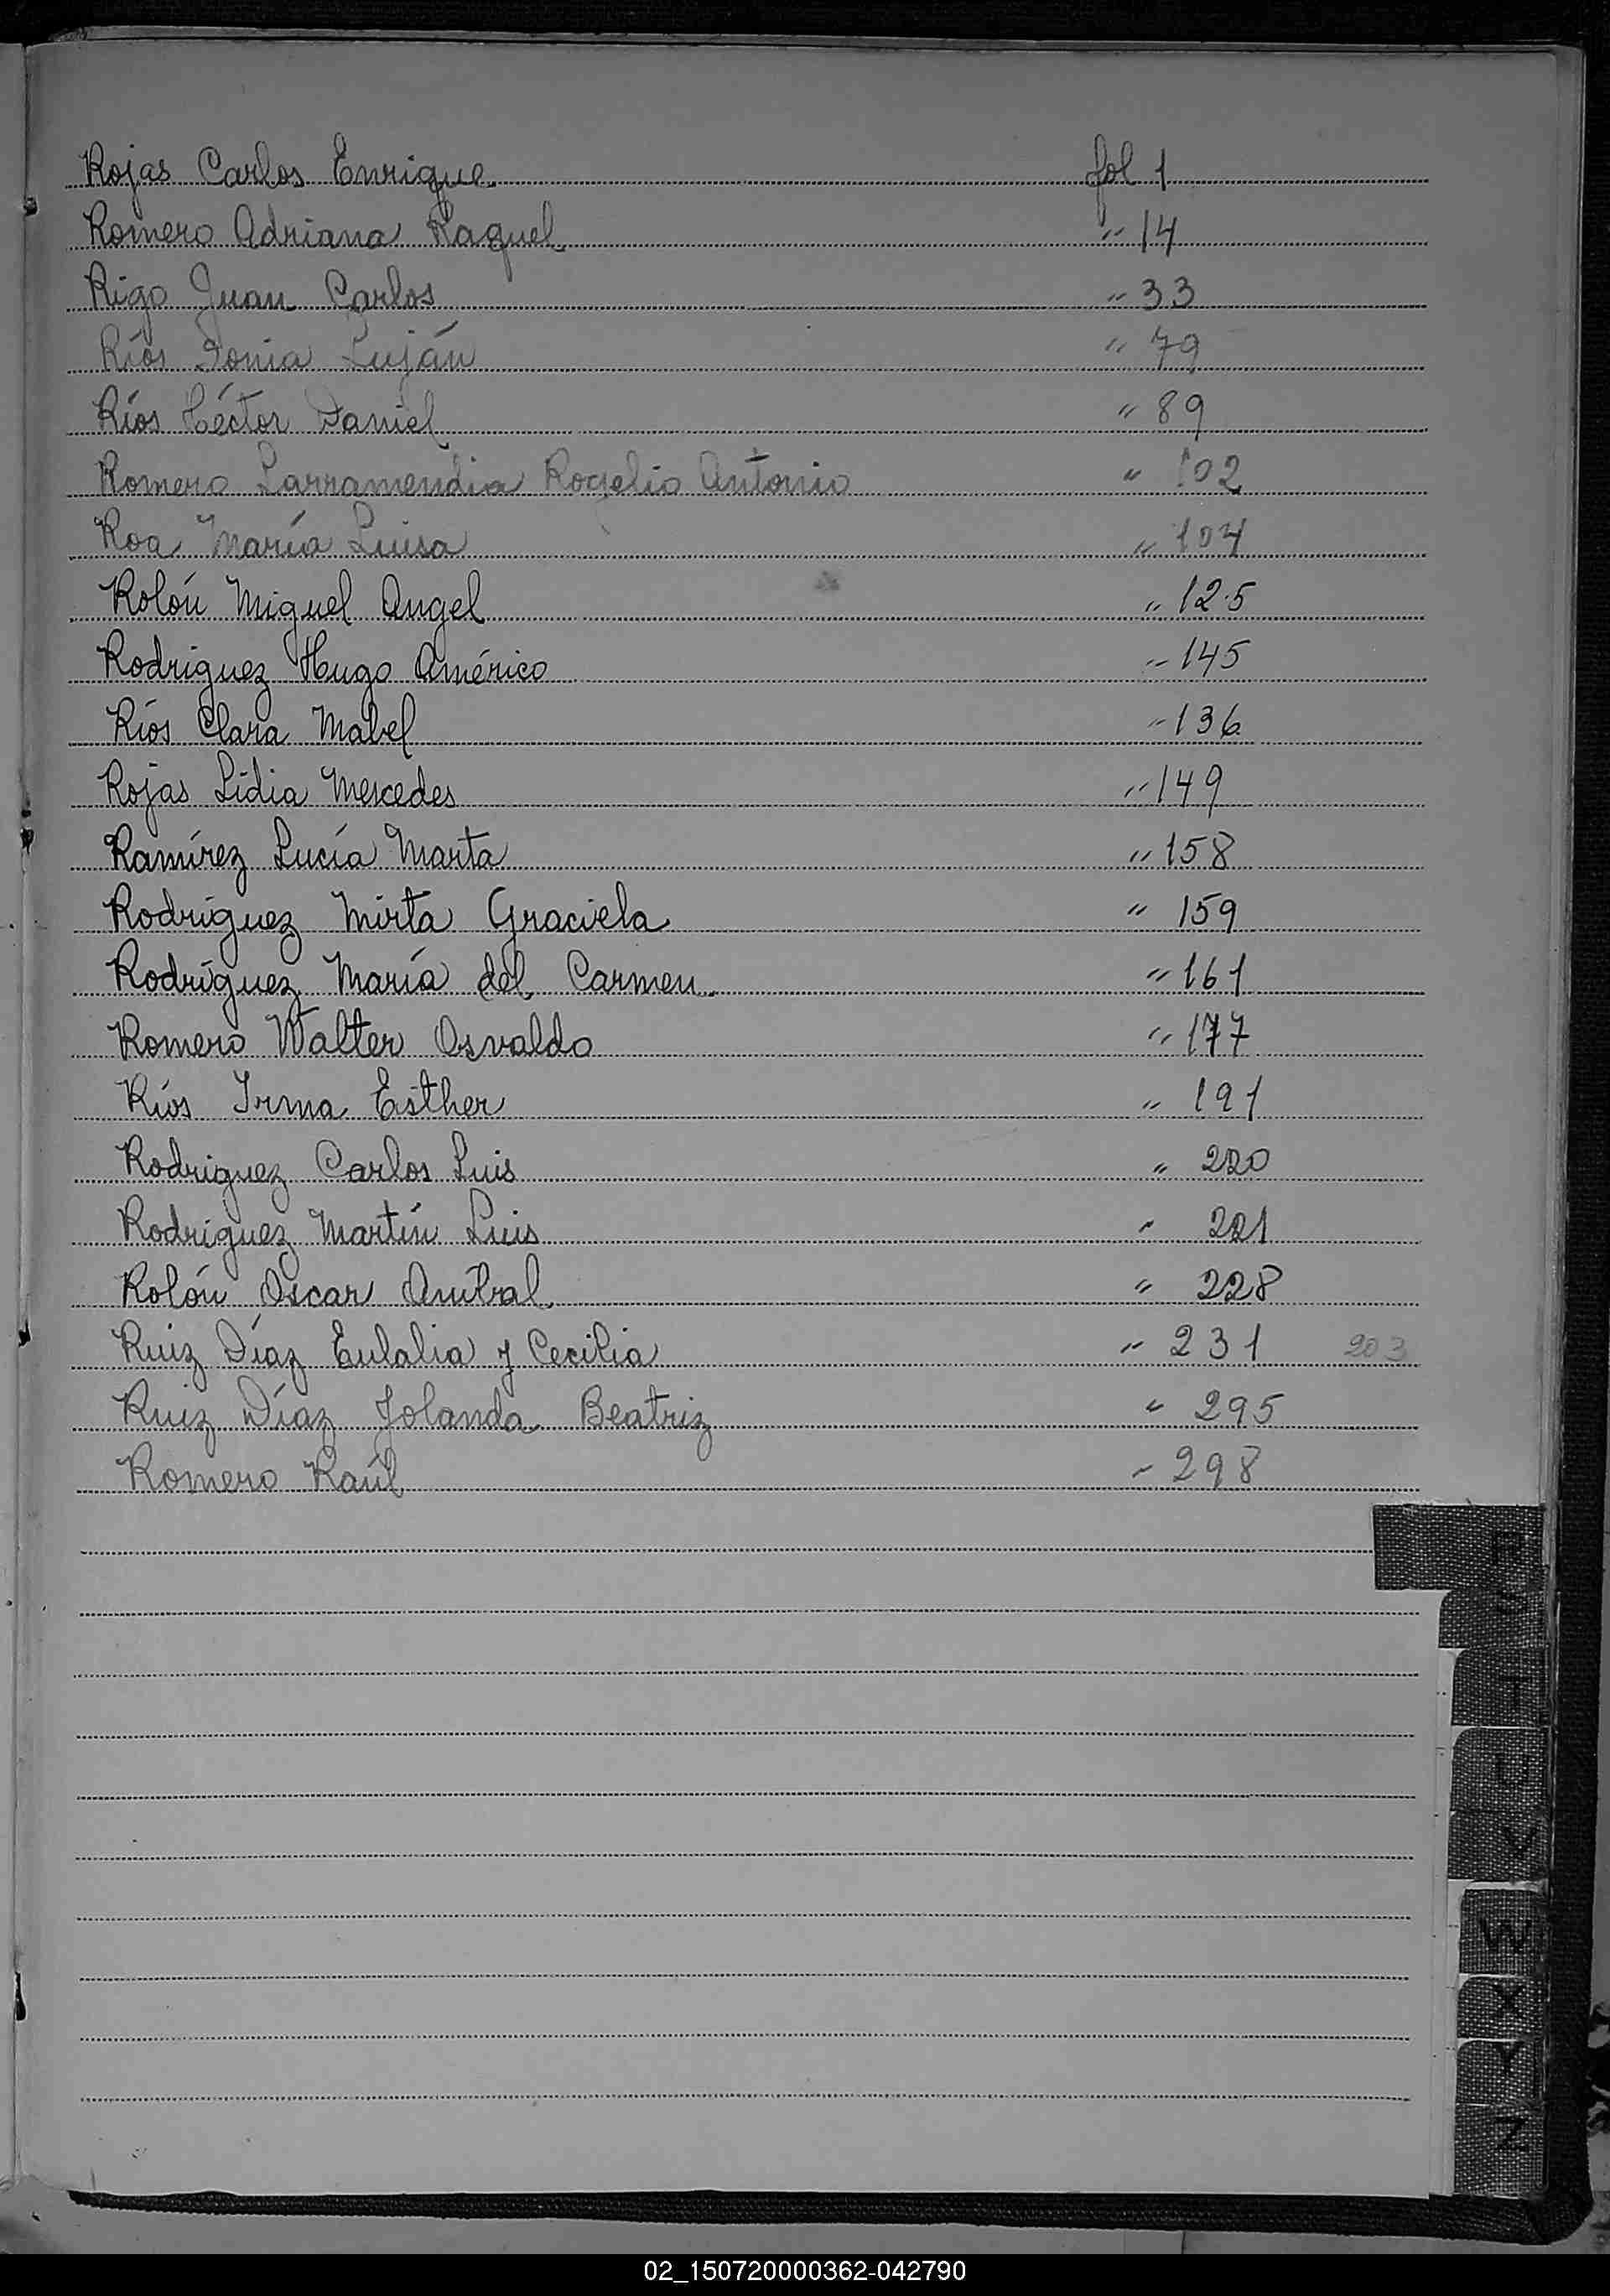 Rojas Carlos Enrique fol 1
Romero Adriana Raquel " 14
Rigo Juan Carlos " 33
Ríos Sonia Luján " 79
Ríos Héctor Daniel " 89
Romero Larramendia Rogelio Antonio " 102
Roa María Luisa " 104
Rolón Miguel Angel " 125
Rodriguez Hugo Américo " 145
Ríos Clara Mabel " 136
Rojas Lidia Mercedes " 149
Ramírez Lucía Marta " 158
Rodríguez Mirta Graciela " 159
Rodríguez María del Carmen " 161
Romero Walter Osvaldo " 177
Ríos Irma Esther " 191
Rodriguez Carlos Luis " 220
Rodriguez Martín Luis " 221
Rolón Oscar Anibal " 228
Ruiz Díaz Eulalia y Cecilia " 231 203
Ruiz Díaz Yolanda Beatriz " 295
Romero Raúl " 298
R
S
T
U
V
W
X
Y
Z
02_150720000362-042790